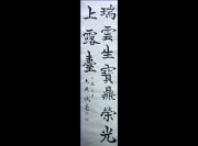 瑞雲生寶鼎榮光
上露臺